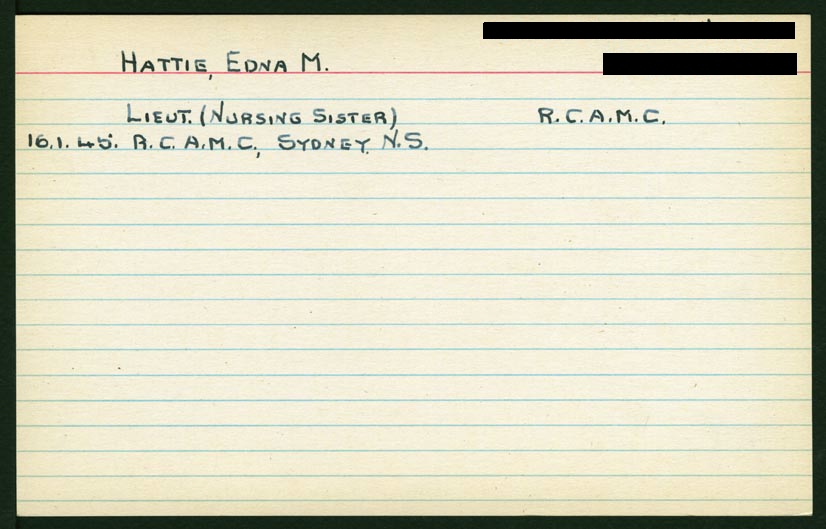 HATTIE, EDNA M.
LIEUT. (NURSING SISTER) R.C.A.M.C.
16.1.45. R.C.A.M.C., SYDNEY. N.S.